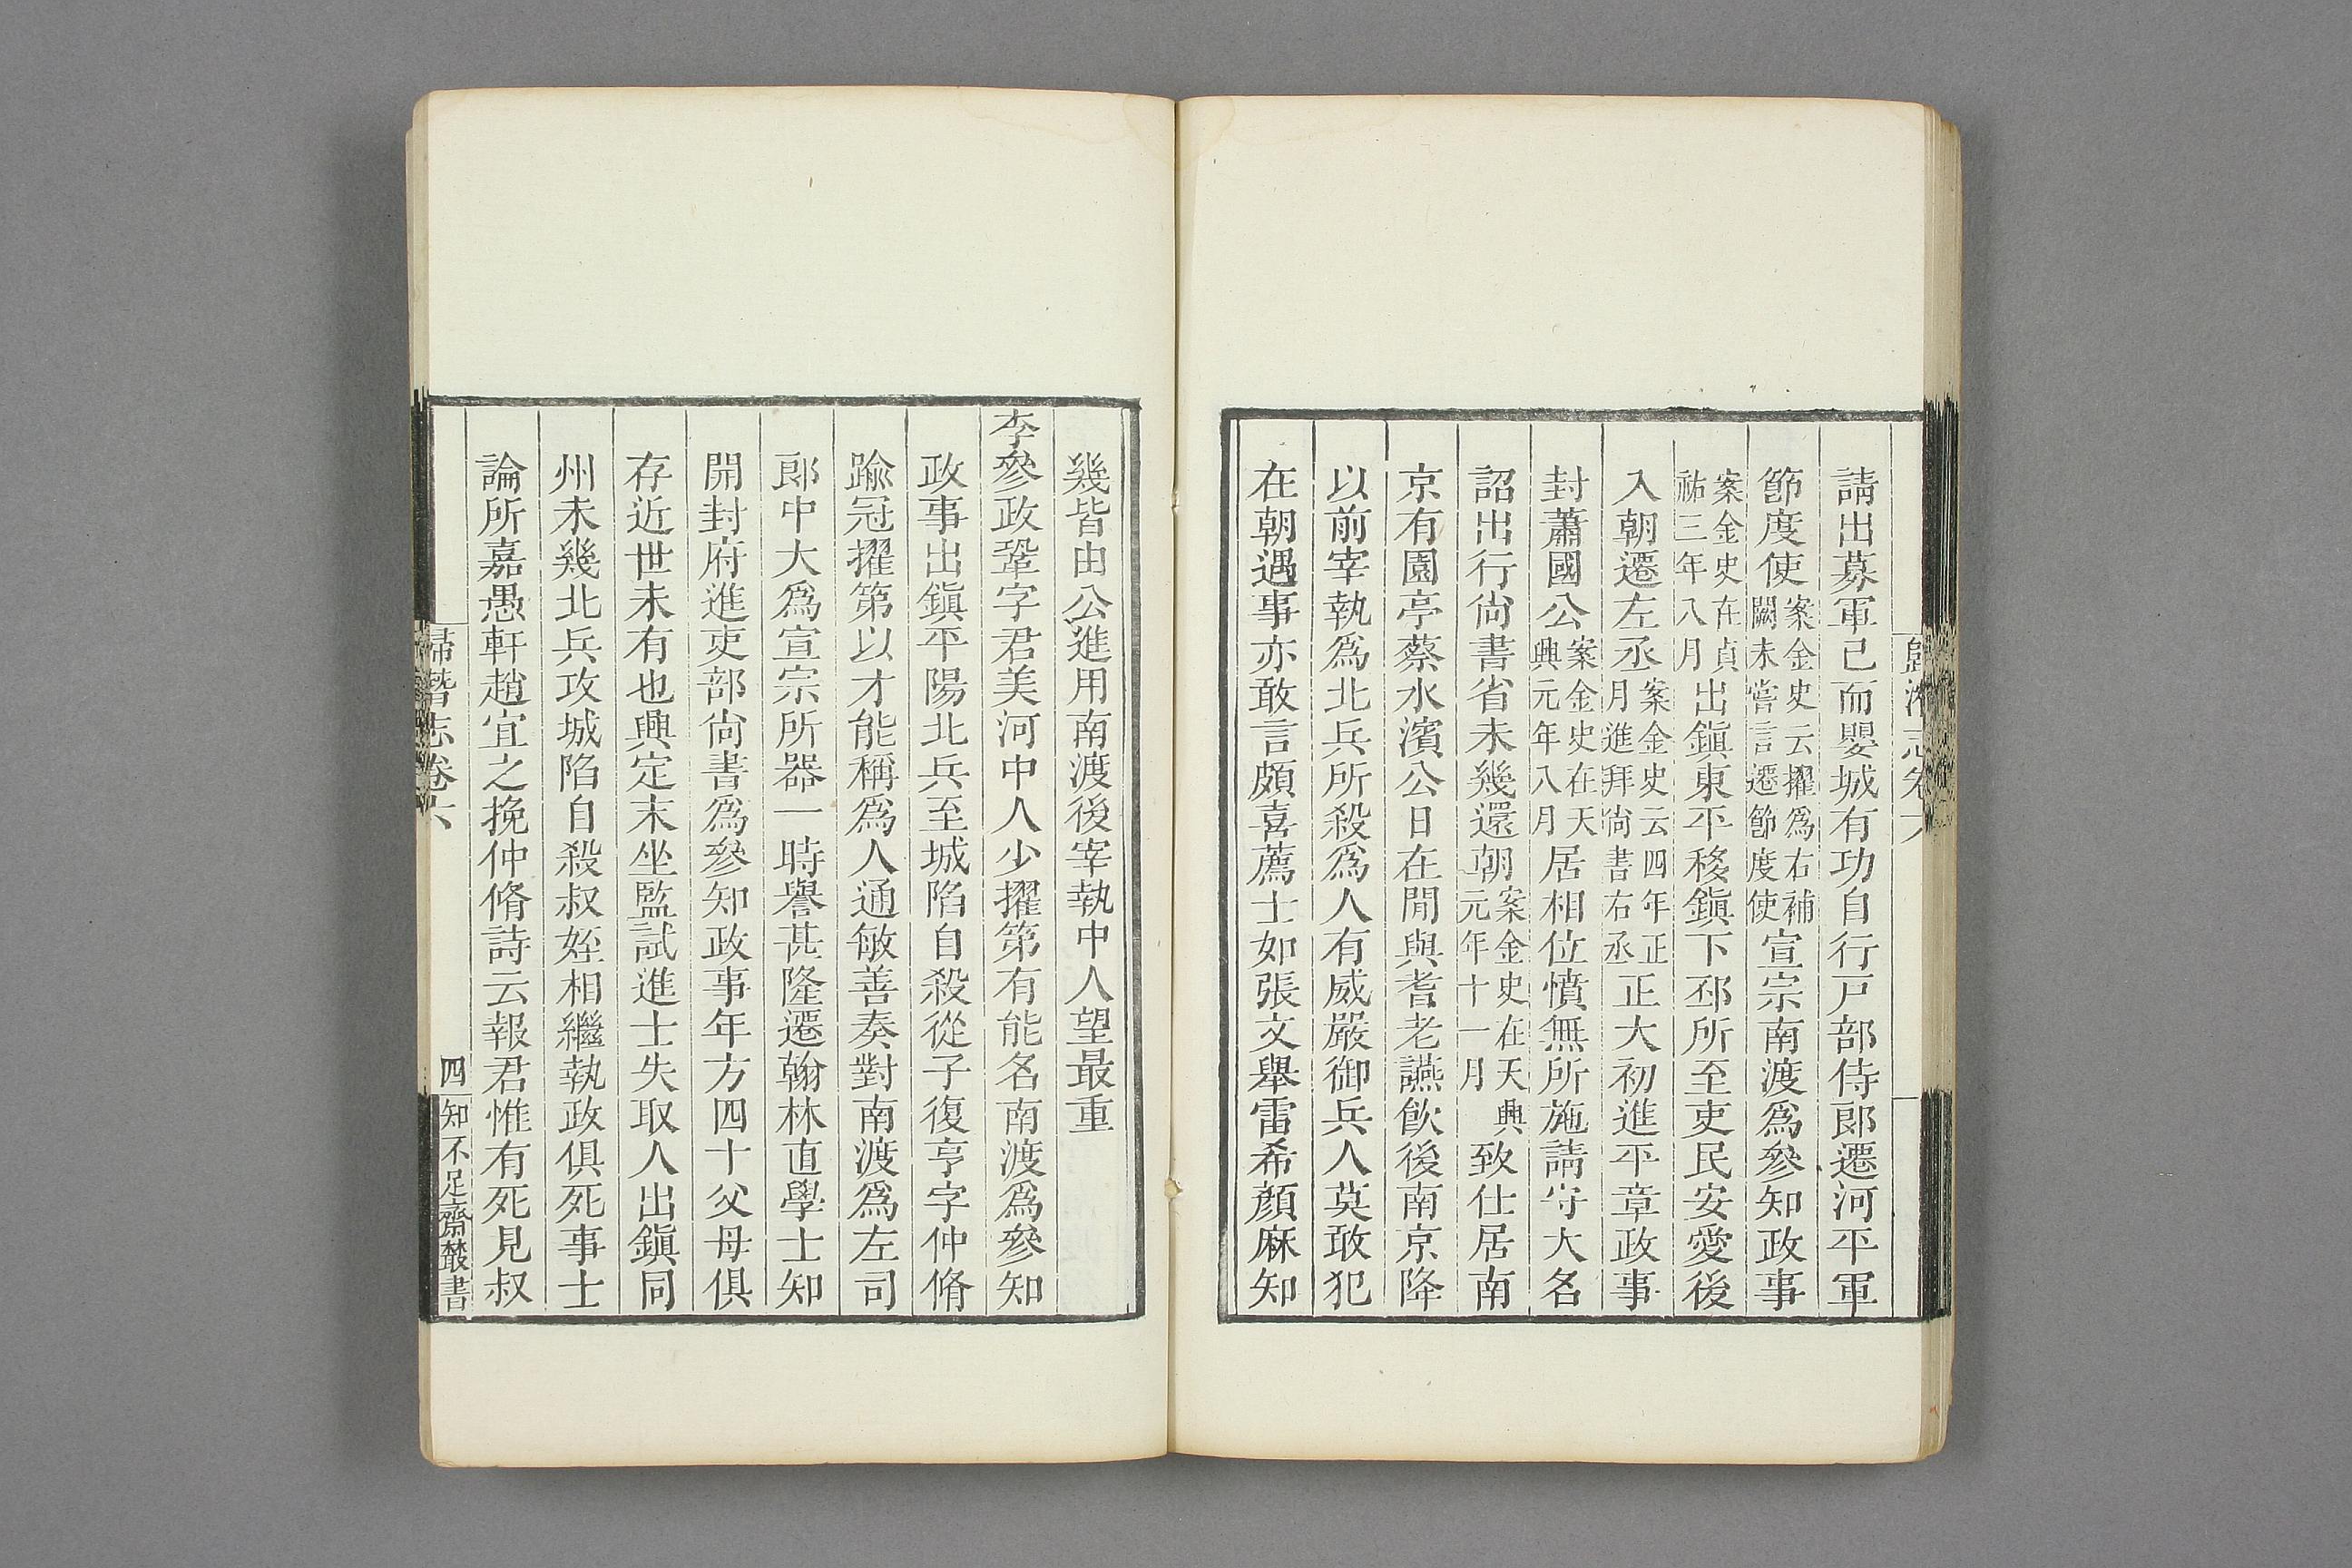 歸潛志卷六
請出募軍已而嬰城有功自行戸部侍郎遷河平軍
節度使案金史云擢爲右補闕未嘗言遷節度使宣宗南渡爲參知政事
案金史在貞祐三年八月出鎭東平移鎭下邳所至吏民安愛後
入朝遷左丞案金史云四年正月進拜尙書右丞正大初進平章政事
封蕭國公案金史在天興元年八月居相位憤無所施請守大名
詔出行尙書省未幾還朝案金史在天興元年十一月致仕居南
京有園亭蔡水濱公日在閒與耆老讌飮後南京降
以前宰執爲北兵所殺爲人有威嚴御兵人莫敢犯
在朝遇事亦敢言頗喜薦士如張文舉雷希顏麻知
幾皆由公進用南渡後宰執中人望最重
李參政鞏字君美河中人少擢第有能名南渡爲參知
政事出鎭平陽北兵至城陷自殺從子復亨字仲脩
踰冠擢第以才能稱爲人通敏善奏對南渡爲左司
郎中大爲宣宗所器一時譽甚隆遷翰林直學士知
開封府進吏部尙書爲參知政事年方四十父母俱
存近世未有也興定末坐監試進士失取人出鎭同
州未幾北兵攻城陷自殺叔姪相繼執政俱死事士
論所嘉愚軒趙宜之挽仲脩詩云報君惟有死見叔
歸潛志卷六
四
知不足齋叢書